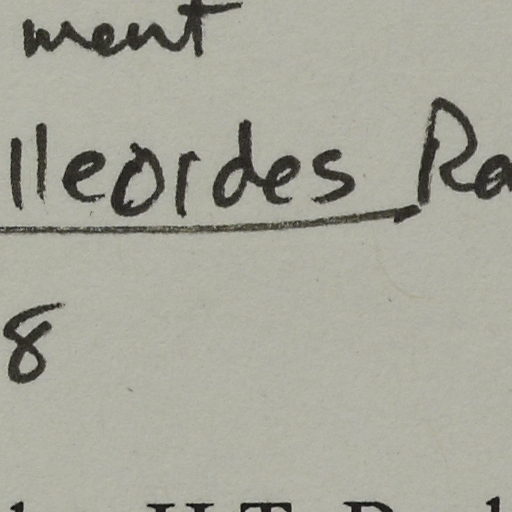 ment
lleoides Ra
8